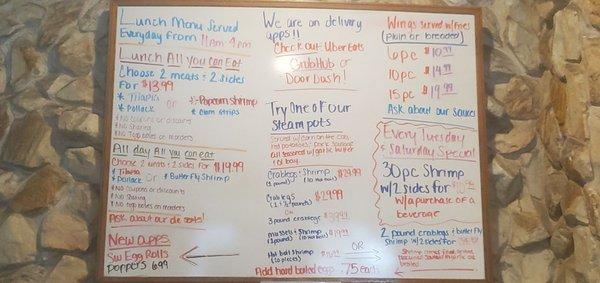 Lunch Menu Served
Everyday From 11am-4pm
Lunch All You can Eat
Choose 2 meats & 2 sides
For $13.99
* Tilapia or * Popcorn shrimp
* Pollock * Clam Strips
* No coupons or discounts
* No Sharing
* No Togo boxes or
All day All you can eat
Choose 2 meats & 2 sides For $19.99
* Tilapia
* Pollock or * Butterfly Shrimp
* No coupons or discounts
* No Sharing
* No togo boxes or
Ask about our
New apps
SW Egg Rolls
Poppers 6.99
We are on delivery
apps!!
Check out Uber Eats
GrubHub or
Door Dash!
Try One of Our
Steam pots
Served w/corn on the cob,
red potatoes, pork sausage
all seasoned w/garlic butter
or bay.
Crablegs & Shrimp $29.99
(1 pound)
Crablegs $29.99
(1 1/2 pounds)
or
3 pound crablegs
mussels & Shrimp $19.99
(1 pound)
Shrimp
Add hard boiled eggs .75 each
Wings served w/Fries
(plain or breaded)
6pc $10.99
10pc $14.99
15pc $19.99
Ask about our sauces
Every Tuesday
& Saturday Special
30pc Shrimp
w/2 sides for
w/a purchase of a
beverage
2 pound crablegs & butterfly
Shrimp w/2 sides for
OR
Shrimp comes fried, grilled,